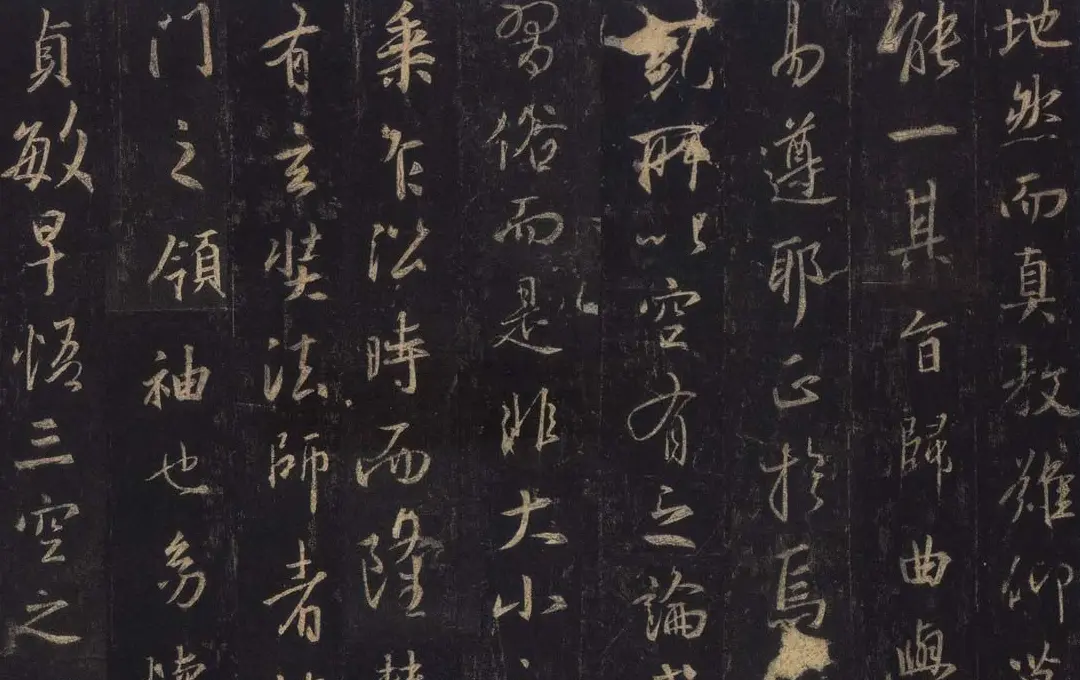 地然而真教難仰莫
能一其旨歸曲學
易遵耶正於焉
所以空有之論或
習俗而是非大小
乘乍沿時而隆替
有玄奘法師者
門之領袖也幼懷
貞敏早悟三空之